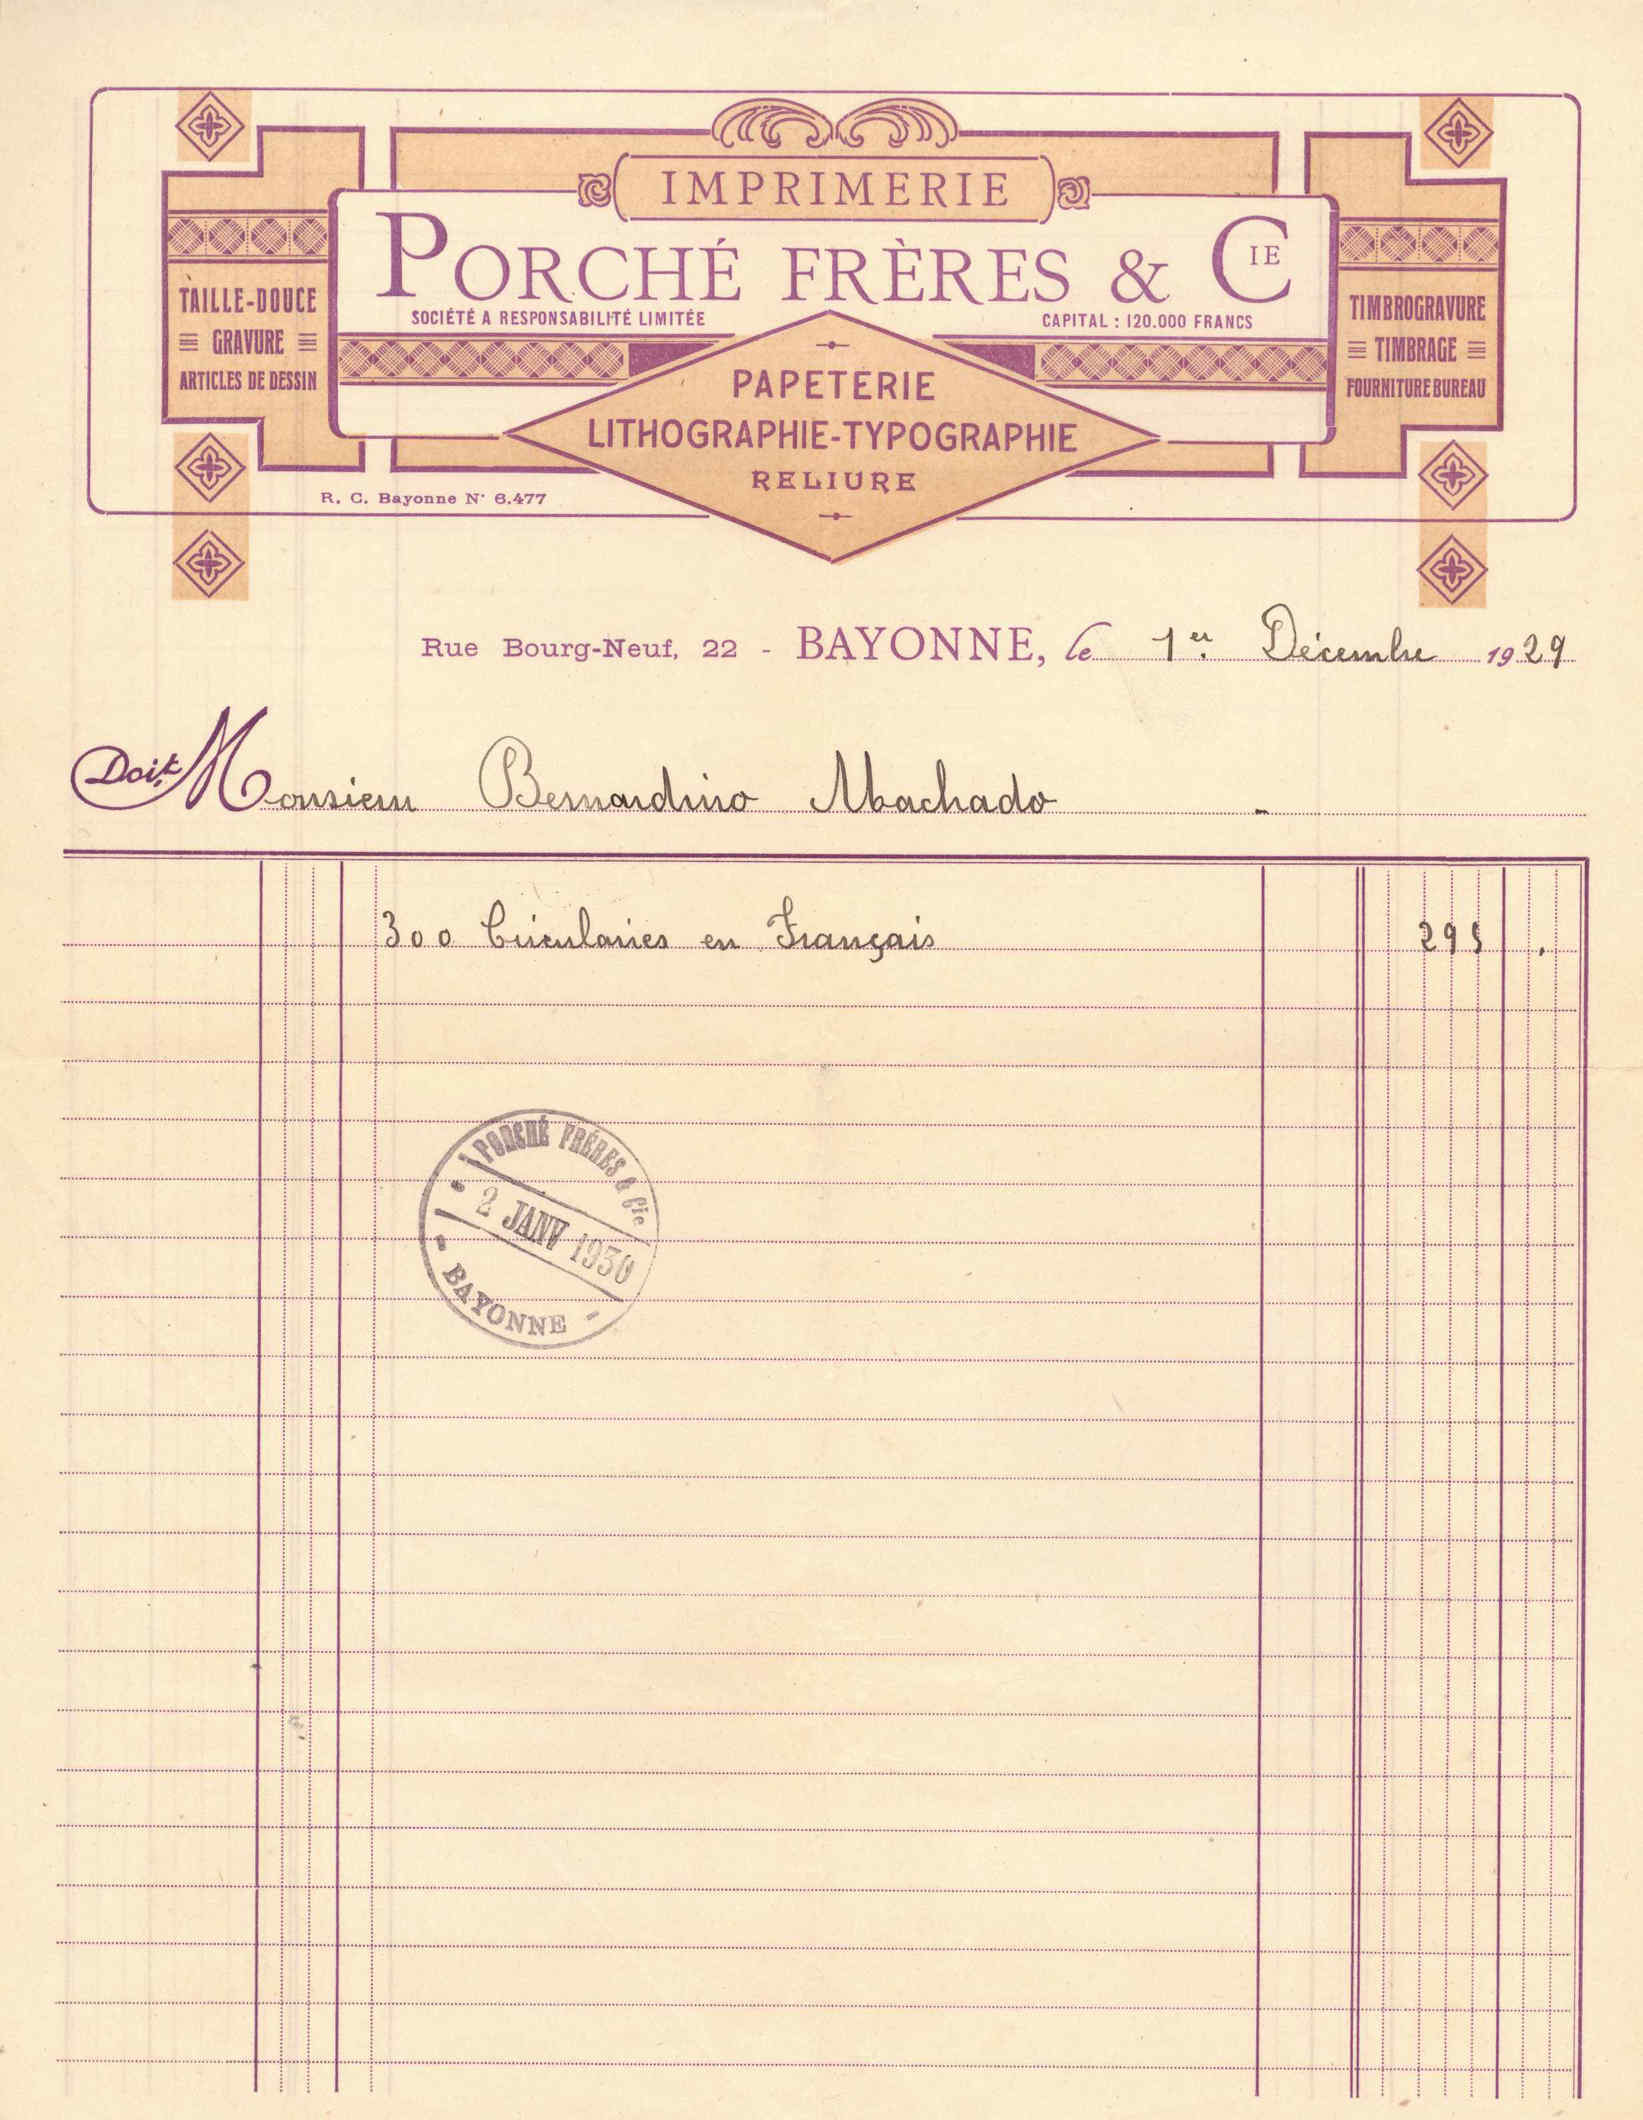 IMPRIMERIE
PORCHÉ FRÈRES & CIE
SOCIÉTÉ A RESPONSABILITÉ LIMITÉE
CAPITAL : 120.000 FRANCS
TAILLE-DOUCE
GRAVURE
ARTICLES DE DESSIN
TIMBROGRAVURE
TIMBRAGE
FOURNITURE BUREAU
PAPETERIE
LITHOGRAPHIE-TYPOGRAPHIE
RELIURE
R. C. Bayonne N° 6.477
Rue Bourg-Neuf, 22 - BAYONNE, le 1er Décembre 1929
Doit Monsieur Bernardino Machado
300 Circulaires en Français 295 .
PORCHÉ FRÉRES & Cie
2 JANV 1930
- BAYONNE -